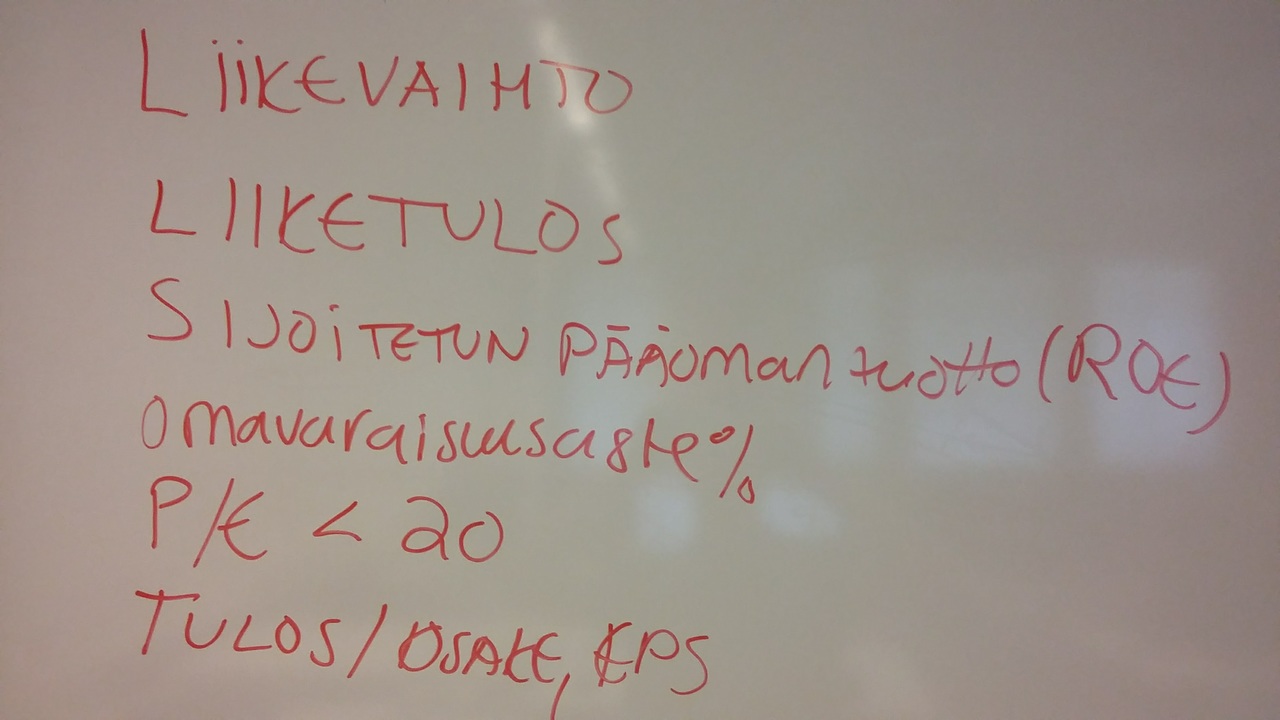 LiiKEVAIHTO
LIIKETULOS
SIJOiTETUN PÄÄOman tuotto (ROE)
omavaraisuusaste%
P/E < 20
TULOS/OSAKE, EPS